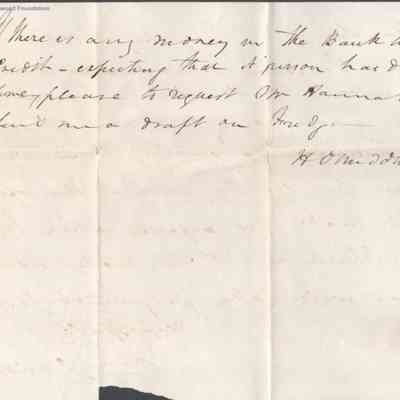 Foundation
If there is any money in the Bank
Credit - expecting that a person had
please to request Mr Hanna
me a draft on
H